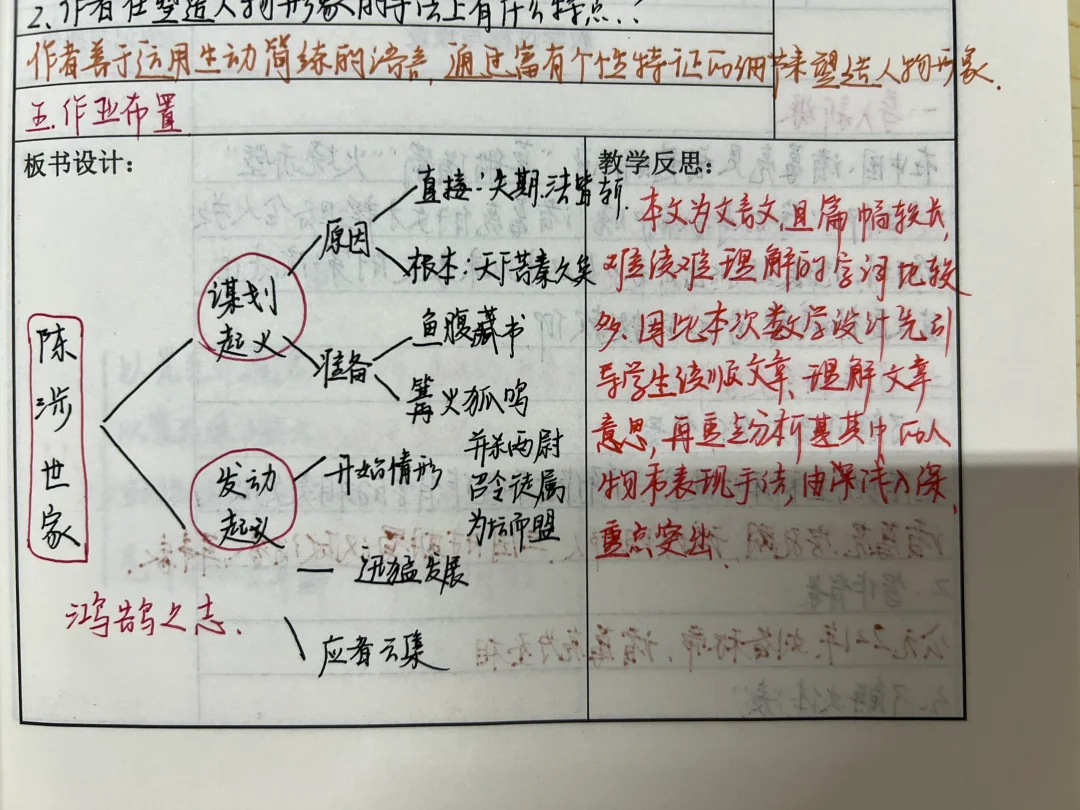 2.作者在塑造人物形象的手法上有什么特点?
作者善于运用生动简练的语言,通过富有个性特证的细节来塑造人物形象.
五.作业布置
板书设计:
直接:失期.法皆斩.
原因
根本:天下苦秦久矣
谋划
起义
鱼腹藏书
准备
篝火狐鸣
陈
涉
世
家
并杀两尉
开始情形
召令徒属
为坛而盟
发动
起义
迅猛发展
鸿鹄之志.
应者云集
教学反思:
本文为文言文,且篇幅较长,
难读难理解的字词比较
多.因此本次教学设计先引
导学生读顺文章、理解文章
意思,再重点分析其中的人
物表现手法,由浅入深,
重点突出.